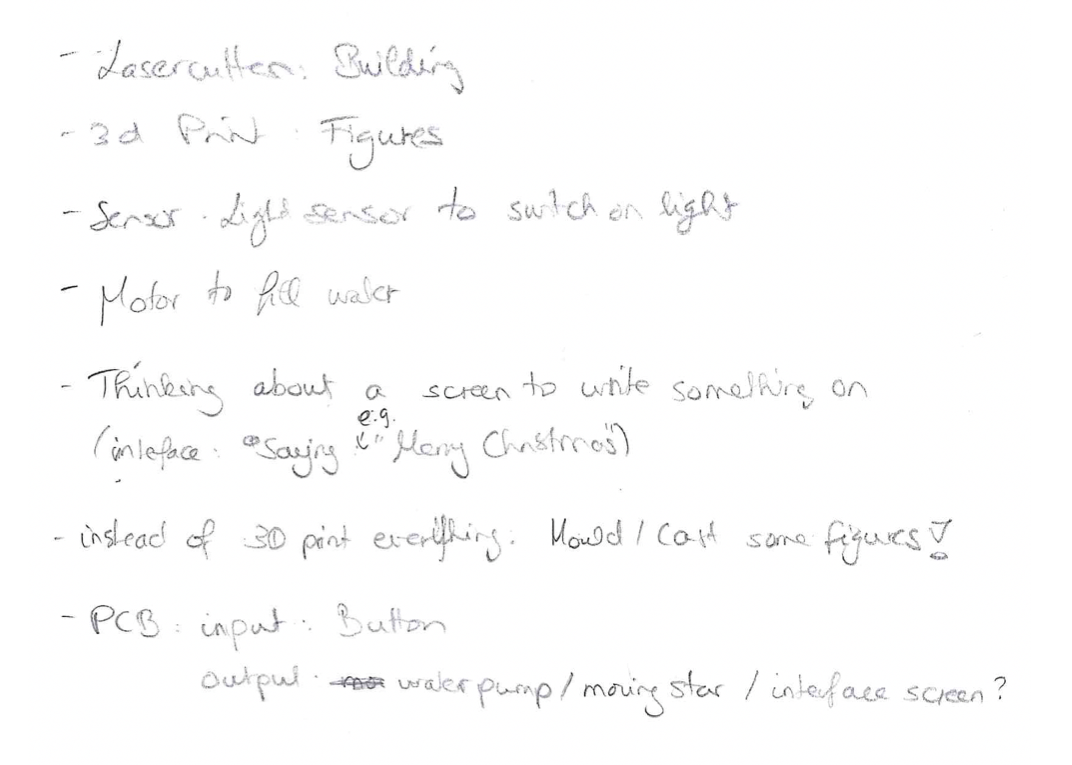 - Lasercutten: Building
- 3d Print : Figures
- Sensor. Light sensor to switch on light
- Motor to fill water
- Thinking about a screen to write something on
e.g.
(inteface: "Saying "Merry Christmas")
- instead of 3D print everything: Mould / Cast some figures!
- PCB: input: Button
output: water pump / moving star / interface screen?